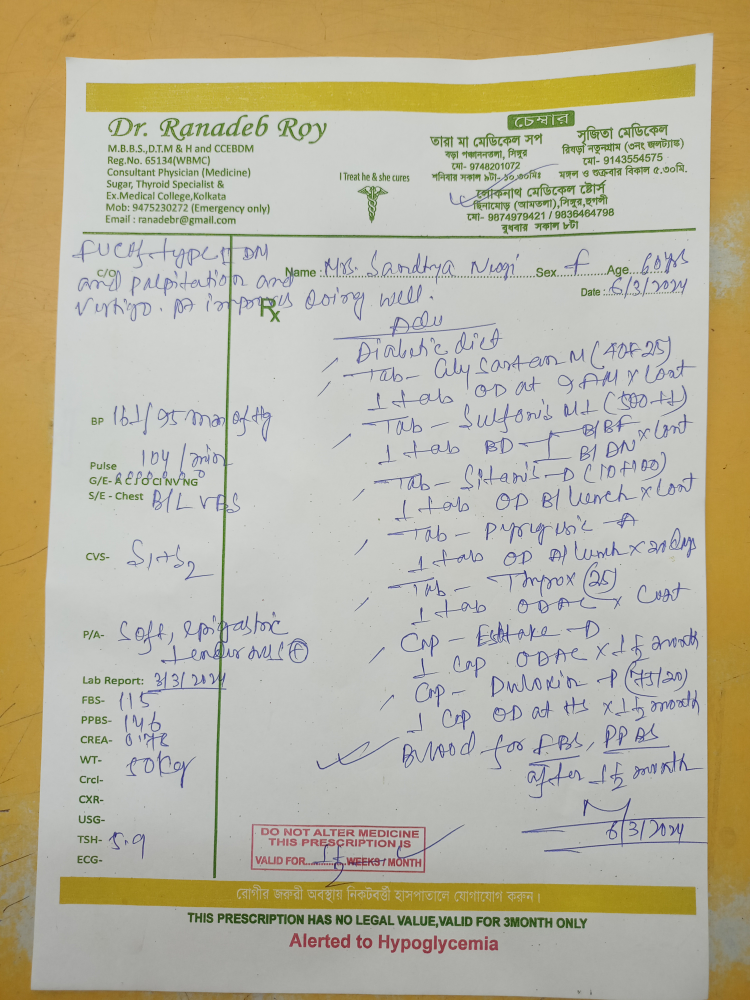 Dr. Ranadeb Roy
M.B.B.S.,D.T.M & H and CCEBDM
Reg.No. 65134(WBMC)
Consultant Physician (Medicine)
Sugar, Thyroid Specialist &
Ex.Medical College,Kolkata
Mob: 9475230272 (Emergency only)
Email : ranadebr@gmail.com
I Treat he & she cures
চেম্বার
তারা মা মেডিকেল সপ
বড়া পঞ্চাননতলা, সিঙ্গুর
মো- 9748201072
শনিবার সকাল ৯টা- ১০.৩০মিঃ
সৃজিতা মেডিকেল
রিষড়া নতুনগ্রাম (৩নং জলট্যাঙ্ক)
মো- 9143554575
মঙ্গল ও শুক্রবার বিকাল ৫.৩০মি.
লোকনাথ মেডিকেল ষ্টোর্স
ছিনামোড় (আমতলা),সিঙ্গুর,হুগলী
মো- 9874979421 / 9836464798
বুধবার সকাল ৮টা
C/O
FUC of Type II DM
and palpitation and
vertigo. pt improves doing well.
Name : Mrs. Sandhya Niogi Sex f Age 60 yrs
Date : 6/3/2024
Rx
Adv
Diabetic diet
Tab - Glysartan M (40+25)
1 tab OD at 9 AM x Cont
Tab - Sulfonis M1 (500+1)
1 tab BD B/BF
B/DN x Cont
Tab - Sitanis-D (10+100)
1 tab OD B/Lunch x Cont
Tab -
1 tab OD A/Lunch x 20 days
Tab - Thyrox (25)
1 tab ODAC x Cont
Cap - -D
1 Cap ODAC x 1½ month
Cap - Duloxin - P (75/20)
1 Cap OD at HS x 1½ month
Blood for FBS, PPBS
after 1½ month
6/3/2024
BP 161/95 mm of Hg
Pulse 104/min
G/E- A C I O CI NV NG
S/E - Chest B/L VBS
CVS- S1+S2
P/A- Soft, epigastric
tenderness +
Lab Report: 3/3/2024
FBS- 115
PPBS- 146
CREA- 0.78
WT- 50Kg
Crcl-
CXR-
USG-
TSH- 5.9
ECG-
DO NOT ALTER MEDICINE
THIS PRESCRIPTION IS
VALID FOR 1½ WEEKS / MONTH
রোগীর জরুরী অবস্থায় নিকটবর্ত্তী হাসপাতালে যোগাযোগ করুন।
THIS PRESCRIPTION HAS NO LEGAL VALUE,VALID FOR 3MONTH ONLY
Alerted to Hypoglycemia